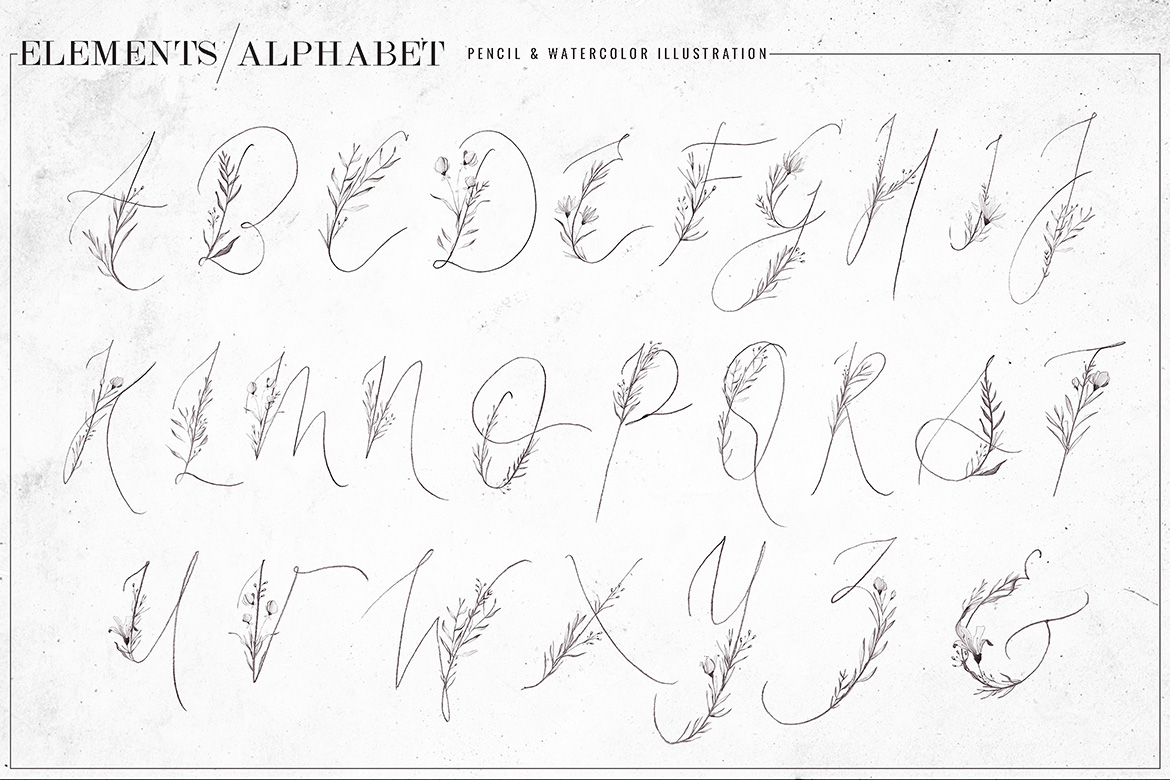 ELEMENTS/ALPHABET PENCIL & WATERCOLOR ILLUSTRATION
A B C D E F G H I J
K L M N O P Q R S T
U V W X Y Z &